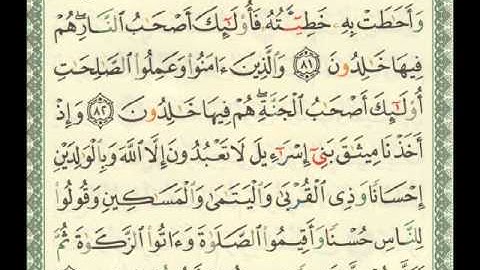 وَأَحَٰطَتْ بِهِۦ خَطِيٓـَٔتُهُۥ فَأُو۟لَٰٓئِكَ أَصْحَٰبُ ٱلنَّارِ ۖ هُمْ
فِيهَا خَٰلِدُونَ ٨١ وَٱلَّذِينَ ءَامَنُوا۟ وَعَمِلُوا۟ ٱلصَّٰلِحَٰتِ
أُو۟لَٰٓئِكَ أَصْحَٰبُ ٱلْجَنَّةِ ۖ هُمْ فِيهَا خَٰلِدُونَ ٨٢ وَإِذْ
أَخَذْنَا مِيثَٰقَ بَنِىٓ إِسْرَٰٓءِيلَ لَا تَعْبُدُونَ إِلَّا ٱللَّهَ وَبِٱلْوَٰلِدَيْنِ
إِحْسَانًا وَذِى ٱلْقُرْبَىٰ وَٱلْيَتَٰمَىٰ وَٱلْمَسَٰكِينِ وَقُولُوا۟
لِلنَّاسِ حُسْنًا وَأَقِيمُوا۟ ٱلصَّلَوٰةَ وَءَاتُوا۟ ٱلزَّكَوٰةَ ثُمَّ